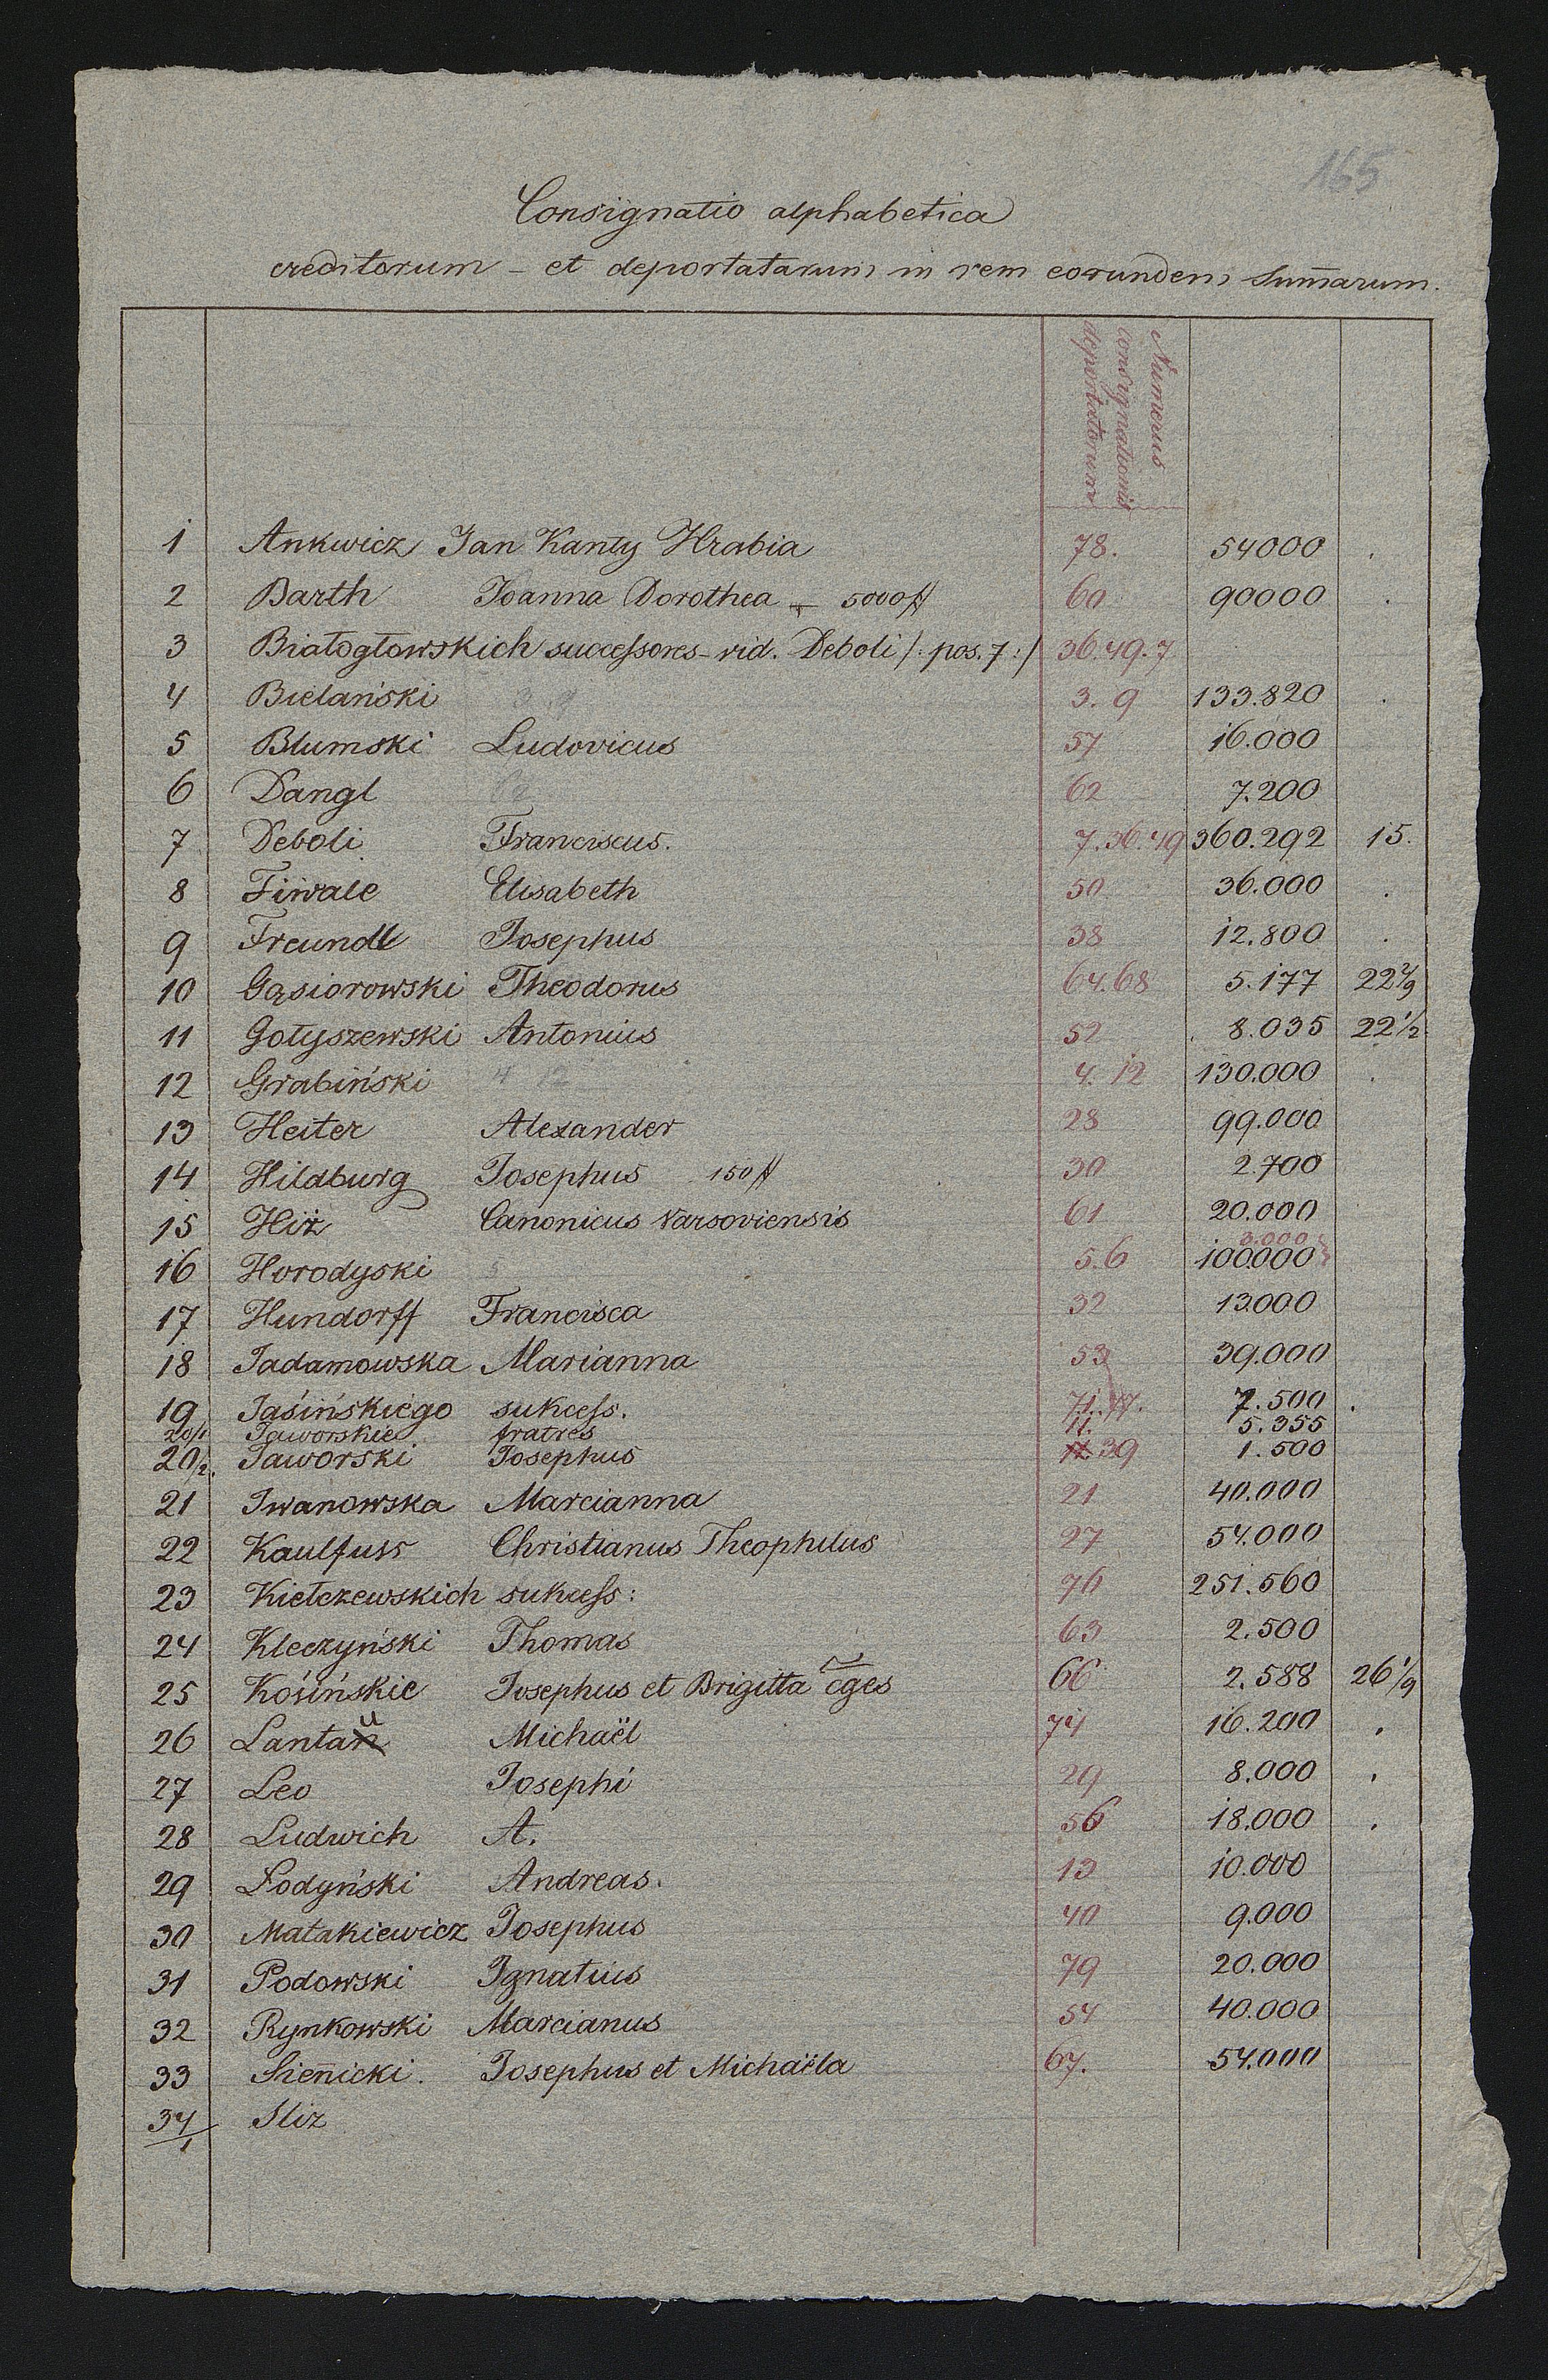 165
Consignatio alphabetica
creditorum – et deportatarum in rem eorundem Sum̄arum.
Numerus
consignationis
deportatorum
1 Ankwicz Jan Kanty Hrabia 78. 54000 .
2 Barth Joanna Dorothea – 5000 # 60 90000 .
3 Białogłowskich successores – vid. Deboli /: pos. 7 :/ 36. 49. 7
4 Bielański 3. 9 3. 9 133.820 .
5 Blumski Ludovicus 57 16.000
6 Dangl 62 62 7.200
7 Deboli Franciscus. 7. 36. 49 360.292 15.
8 Fiwale Elisabeth 50 36.000 .
9 Freundl Josephus 38 12.800 .
10 Gąsiorowski Theodorus 64. 68 5.177 22 2/9
11 Gołyszewski Antonius 52 8.035 22 1/2
12 Grabiński 4 12 4. 12 130.000 .
13 Heiter Alexander 28 99.000
14 Hildburg Josephus 150 # 30 2.700
15 Hiż Canonicus Varsoviensis 61 20.000
3.000
16 Horodyski 5 5. 6 100000
17 Hundorff Francisca 32 13.000
18 Jadamowska Marianna 53 39.000
19 Jasińskiego sukcess. 71. 77. 7.500 .
20/1 Jaworskie fratres 11. 5.355
20/2. Jaworski Josephus 39 1.500
21 Iwanowska Marcianna 21 40.000
22 Kaulfuss Christianus Theophilus 27 54.000
23 Kiełczewskich sukcess: 76 251.560
24 Kleczyński Thomas 63 2.500
25 Kosińskie Josephus et Brigitta cges 66 2.588 26 1/9
26 Lantau Michaël 74 16.200 .
27 Leo Josephi 29 8.000 .
28 Ludwich A. 56 18.000 .
29 Łodyński Andreas. 13 10.000
30 Matakiewicz Josephus 40 9.000
31 Podowski Ignatius 79 20.000
32 Rynkowski Marcianus 54 40.000
33 Sien̄icki. Josephus et Michaëla 67. 54.000
34/1 Sliz